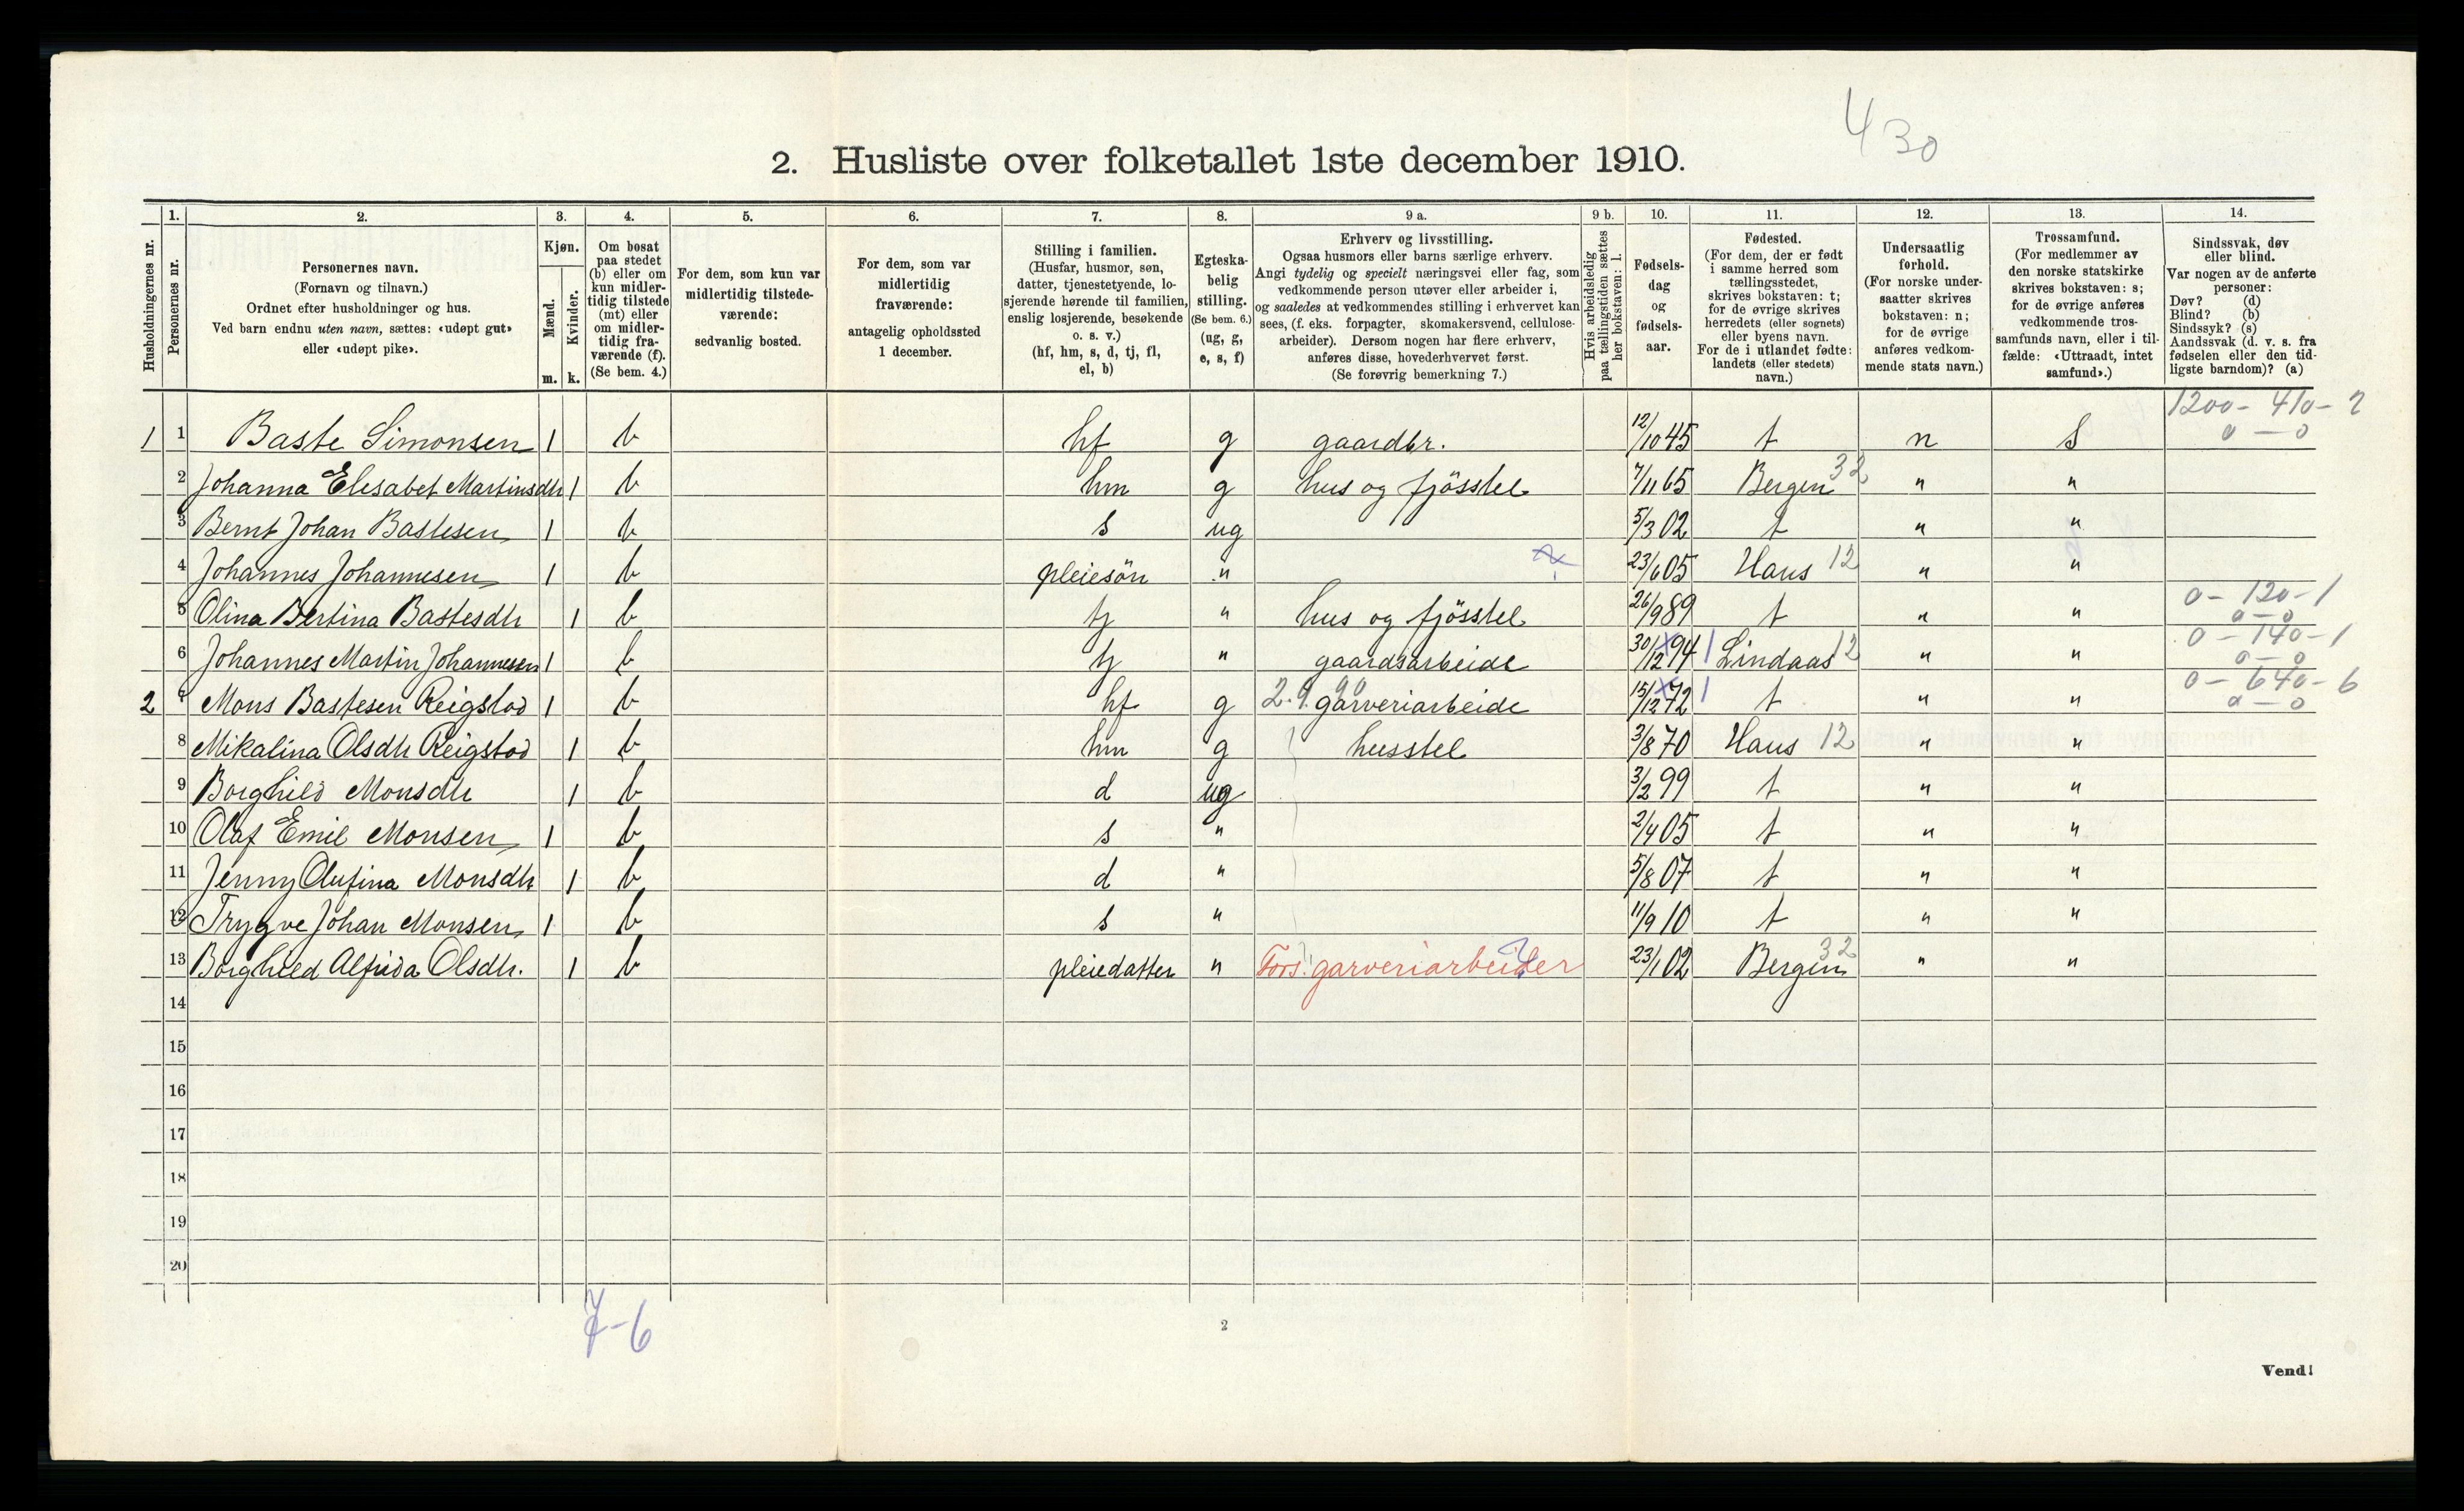 430
2. Husliste over folketallet 1ste december 1910.
Husholdningernes nr.
1. Personernes nr.
2. Personernes navn.
(Fornavn og tilnavn.)
Ordnet efter husholdninger og hus.
Ved barn endnu uten navn, sættes: «udøpt gut»
eller «udøpt pike».
3. Kjøn.
Mænd. m.
Kvinder. k.
4. Om bosat
paa stedet
(b) eller om
kun midler-
tidig tilstede
(mt) eller
om midler-
tidig fra-
værende (f).
(Se bem. 4.)
5. For dem, som kun var
midlertidig tilstede-
værende:
sedvanlig bosted.
6. For dem, som var
midlertidig
fraværende:
antagelig opholdssted
1 december.
7. Stilling i familien.
(Husfar, husmor, søn,
datter, tjenestetyende, lo-
sjerende hørende til familien,
enslig losjerende, besøkende
o. s. v.)
(hf, hm, s, d, tj, fl,
el, b)
8. Egteska-
belig
stilling.
(Se bem. 6.)
(ug, g,
e, s, f)
9 a. Erhverv og livsstilling.
Ogsaa husmors eller barns særlige erhverv.
Angi tydelig og specielt næringsvei eller fag, som
vedkommende person utøver eller arbeider i,
og saaledes at vedkommendes stilling i erhvervet kan
sees, (f. eks. forpagter, skomakersvend, cellulose-
arbeider). Dersom nogen har flere erhverv,
anføres disse, hovederhvervet først.
(Se forøvrig bemerkning 7.)
9 b. Hvis arbeidsledig
paa tællingstiden sættes
her bokstaven: l.
10. Fødsels-
dag
og
fødsels-
aar.
11. Fødested.
(For dem, der er født
i samme herred som
tællingsstedet,
skrives bokstaven: t;
for de øvrige skrives
herredets (eller sognets)
eller byens navn.
For de i utlandet fødte:
landets (eller stedets)
navn.)
12. Undersaatlig
forhold.
(For norske under-
saatter skrives
bokstaven: n;
for de øvrige
anføres vedkom-
mende stats navn.)
13. Trossamfund.
(For medlemmer av
den norske statskirke
skrives bokstaven: s;
for de øvrige anføres
vedkommende tros-
samfunds navn, eller i til-
fælde: «Uttraadt, intet
samfund».)
14. Sindssvak, døv
eller blind.
Var nogen av de anførte
personer:
Døv? (d)
Blind? (b)
Sindssyk? (s)
Aandssvak (d. v. s. fra
fødselen eller den tid-
ligste barndom)? (a)
1 1 Baste Simonsen 1 b hf g gaardbr. 12/10 45 t n S 1200 - 410 - 2 0 - 0
2 Johanna Elesabet Martinsdtr 1 b hm g hus og fjösstel 7/11 65 Bergen 32 " "
3 Bernt Johan Bastesen 1 b s ug 5/3 02 t " "
4 Johannes Johannesen 1 b pleiesön " 23/6 05 Haus 12 " "
5 Olina Bertina Bastesdtr 1 b tj " hus og fjösstel 26/9 89 t " " 0 - 120 - 1 0 - 0
6 Johannes Martin Johannesen 1 b tj " gaardsarbeide 30/12 94 1 Lindaas 12 " " 0 - 140 - 1 0 - 0
2 7 Mons Bastesen Reigstad 1 b hf g garveriarbeide 15/12 72 1 t " " 0 - 640 - 6 0 - 0
8 Mikalina Olsdtr Reigstad 1 b hm g husstel 3/8 70 Haus 12 " "
9 Borghild Monsdtr 1 b d ug 3/2 99 t " "
10 Olaf Emil Monsen 1 b s " 2/4 05 t " "
11 Jenny Olufina Monsdtr 1 b d " 5/8 07 t " "
12 Trygve Johan Monsen 1 b s " 11/9 10 t " "
13 Borghild Alfrida Olsdtr. 1 b pleiedatter " Fors. garveriarbeider 23/1 02 Bergen 32 " "
14
15
16
17
18
19
20
7-6
2
Vend!